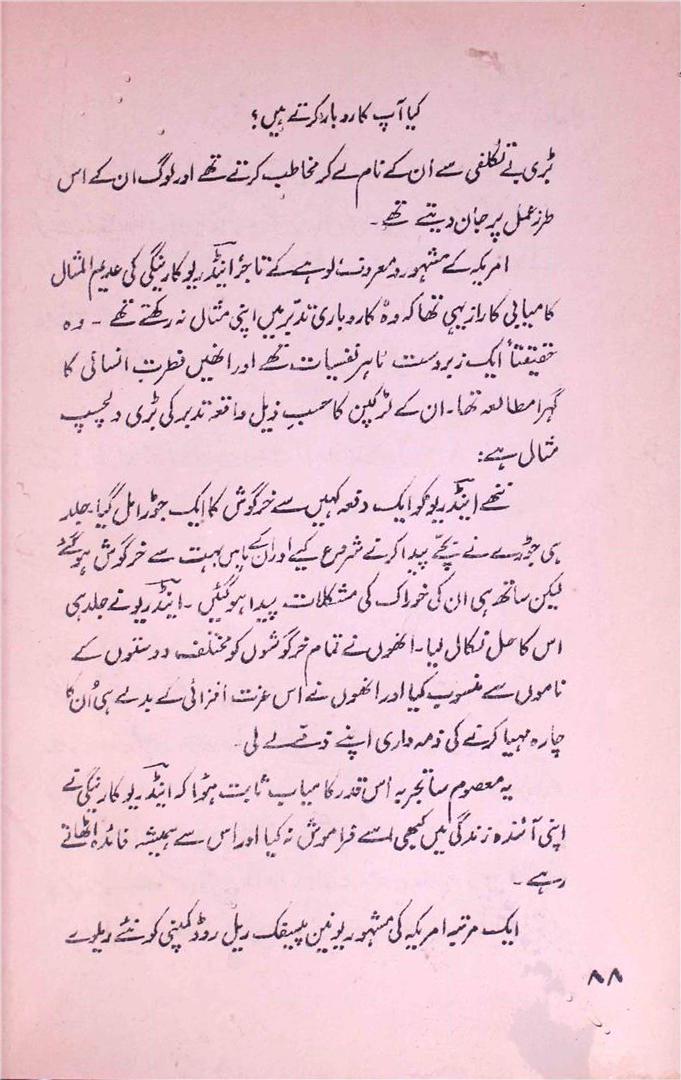 کیا آپ کاروبار کرتے ہیں؟
بڑی بے تکلفی سے اُن کے نام لے کر مخاطب کرتے تھے اور لوگ ان کے اس
طرزِ عمل پر جان دیتے تھے۔
امریکہ کے مشہور و معروف لوہے کے تاجر اینڈریو کارنیگی کی عدیم المثال
کامیابی کا راز یہی تھا کہ وہ کاروباری تدبّر میں اپنی مثال نہ رکھتے تھے ۔ وہ
حقیقتاً ایک زبردست ماہر نفسیات تھے اور انھیں فطرت انسانی کا
گہرا مطالعہ تھا۔ ان کے لڑکپن کا حسبِ ذیل واقعہ تدبر کی بڑی دلچسپ
مثال ہے:
ننھے اینڈریو کو ایک دفعہ کہیں سے خرگوش کا ایک جوڑا مل گیا۔ جلد
ہی جوڑے نے بچے پیدا کرنے شروع کیے اور ان کے پاس بہت سے خرگوش ہو گئے
لیکن ساتھ ہی ان کی خوراک کی مشکلات پیدا ہوگئیں ۔ اینڈریو نے جلد ہی
اس کا حل نکال لیا۔ انھوں نے تمام خرگوشوں کو مختلف دوستوں کے
ناموں سے منسوب کیا اور انھوں نے اس عزت افزائی کے بدلے ہی اُن کا
چارہ مہیا کرنے کی ذمہ داری اپنے ذمے لے لی۔
یہ معصوم سا تجربہ اس قدر کامیاب ثابت ہوا کہ اینڈریو کارنیگی نے
اپنی آئندہ زندگی میں کبھی اسے فراموش نہ کیا اور اس سے ہمیشہ فائدہ اٹھاتے
رہے ۔
ایک مرتبہ امریکہ کی مشہور یونین پیسیفک ریل روڈ کمپنی کو نئے ریلوے
۸۸